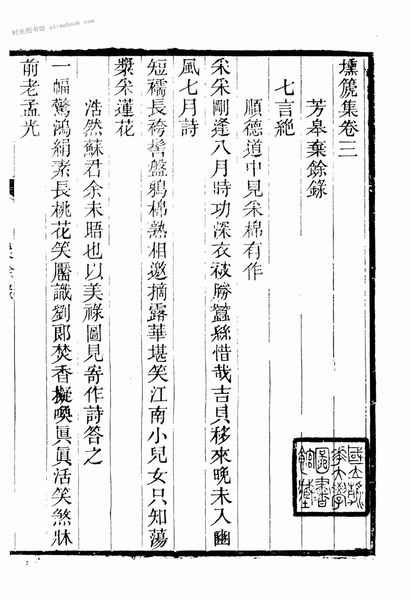 壎箎集卷三
芳皋棄餘錄
七言絕
順德道中見采棉有作
采采剛逢八月時功深衣被勝蠶絲惜哉吉貝移來晚未入豳
風七月詩
短襦長袴髻盤鴉棉熟相邀摘露華堪笑江南小兒女只知蕩
槳采蓮花
浩然蘇君余未晤也以美祿圖見寄作詩答之
一幅驚鴻絹素長桃花笑靨識劉郎焚香擬喚眞眞活笑煞牀
前老孟光